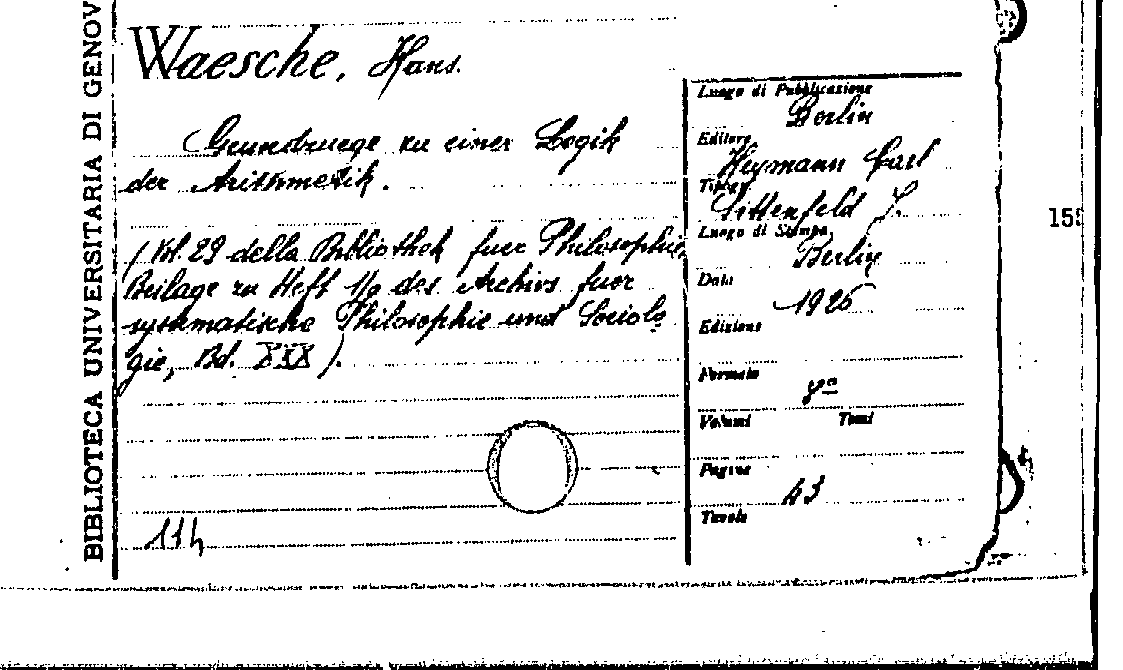 BIBLIOTECA UNIVERSITARIA DI GENOV
Waesche, Hans.
Grundzuege zu einer Logik
der Arithmetik.
(Vol. 29 della Bibliothek fuer Philosophie,
Beilage zu Heft 1/2 des Archivs fuer
systematische Philosophie und Sociolo
gie, Bd. XXX).
114
Luogo di Pubblicazione
Berlin
Editore
Heymann Carl
Tipogr.
Sittenfeld J.
Luogo di Stampa
Berlin
Data
1926
Edizione
Formato
8º
Volumi Tomi
Pagine
43
Tavole
15